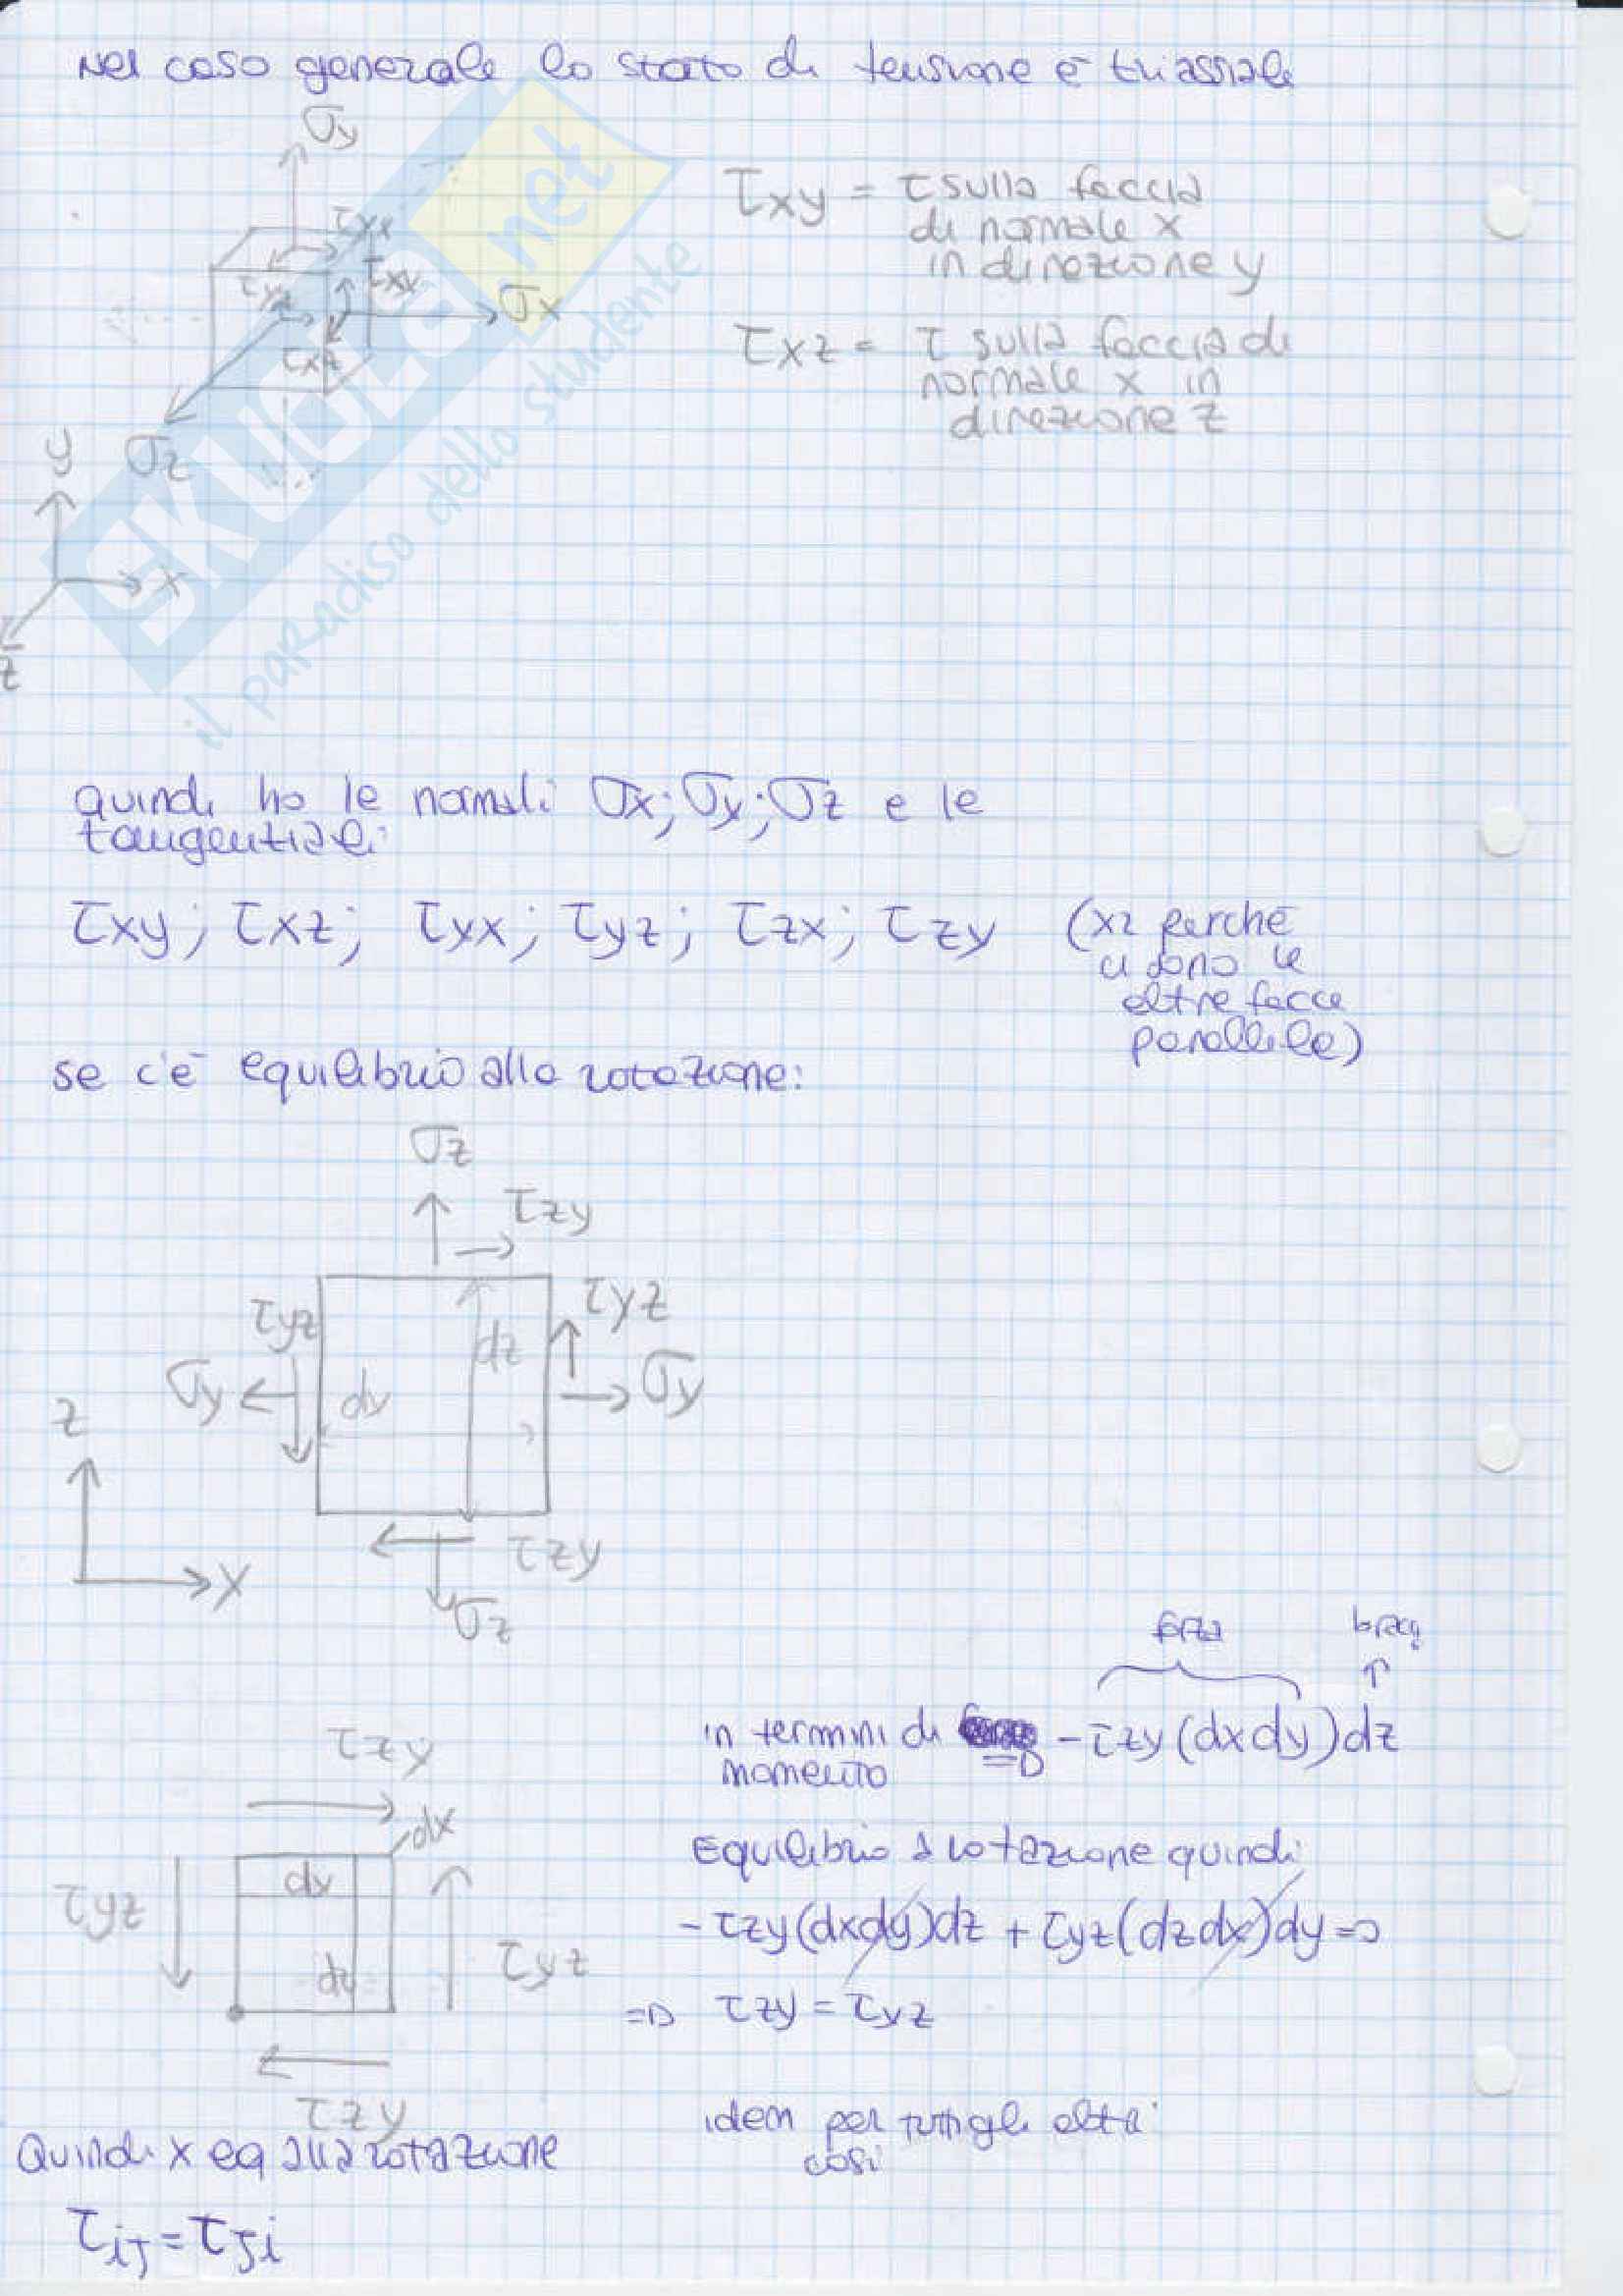 Nel caso generale lo stato di tensione è triassiale
σy
τyx
τxy
τyz
σx
τxz
σz
y
x
z
τxy = τ sulla faccia
di normale x
in direzione y
τxz = τ sulla faccia di
normale x in
direzione z
SKUOLA.net
il paradiso dello studente
quindi ho le normali σx; σy; σz e le
tangenziali:
τxy; τxz; τyx; τyz; τzx; τzy (x2 perché
ci sono le
altre facce
parallele)
se c'è equilibrio alla rotazione:
σz
τzy
τyz
τyz
dz
σy
dy
σy
z
x
τzy
σz
forza
bracc
in termini di
momento
=D -τzy(dxdy)dz
τzy
dx
dy
τyz
dz
τyz
τzy
Equilibrio a rotazione quindi
-τzy(dxdy)dz + τyz(dzdx)dy =>
=D τzy = τyz
idem per tutti gli altri
così
Quindi x eq alla rotazione
τij = τji